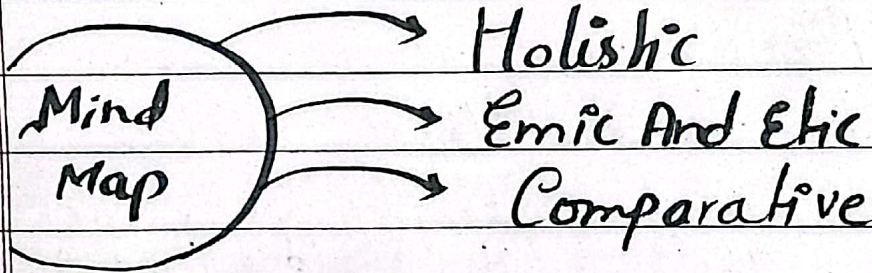 Mind
Map
Holistic
Emic And Etic
Comparative